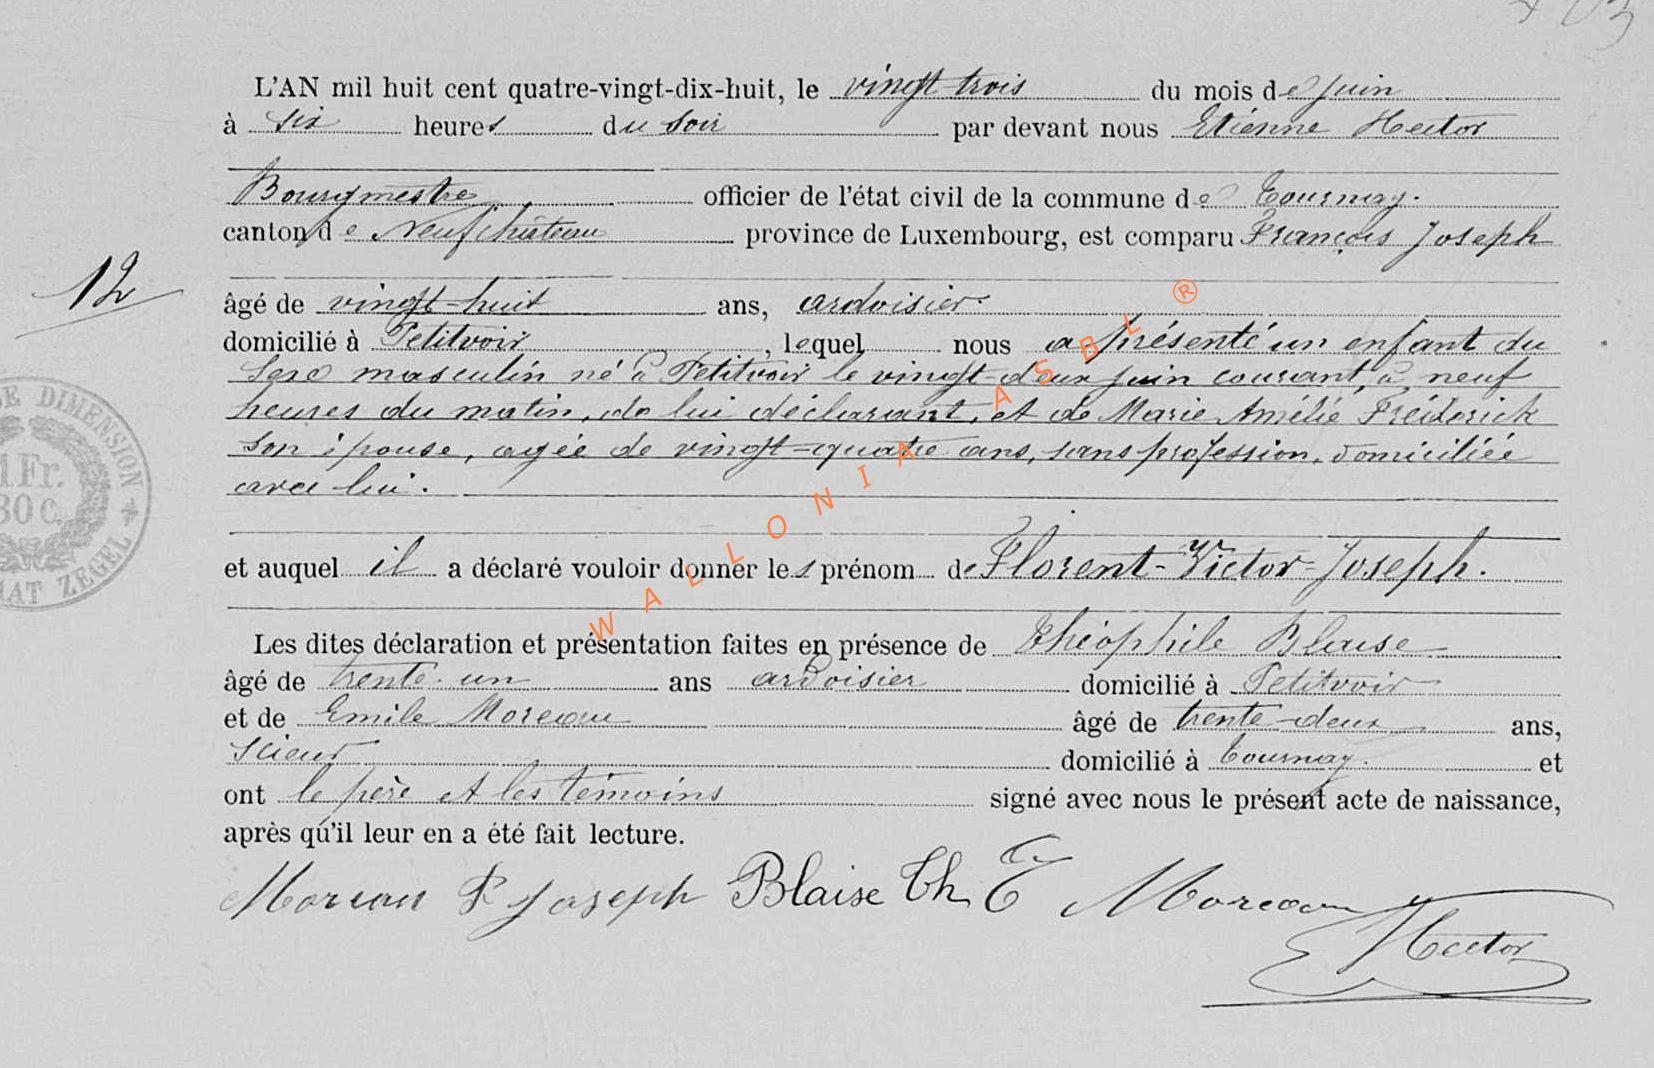 L'AN mil huit cent quatre-vingt-dix-huit, le vingt trois du mois de juin
à six heures du soir par devant nous Etienne Hector
Bourgmestre officier de l'état civil de la commune de Tournay.
canton de Neufchâteau province de Luxembourg, est comparu François Joseph
12
âgé de vingt-huit ans, ardoisier
domicilié à Petitvoir, lequel nous a présenté un enfant du
sexe masculin né à Petitvoir le vingt-deux juin courant, à neuf
heures du matin, de lui déclarant, et de Marie Amélie Fréderick
son épouse, agée de vingt-quatre ans, sans profession, domiciliée
avec lui.
et auquel il a déclaré vouloir donner les prénom de Florent-Victor-Joseph.
Les dites déclaration et présentation faites en présence de Théophile Blaise
âgé de trente-un ans ardoisier domicilié à Petitvoir
et de Emile Moreau âgé de trente-deux ans,
scieur domicilié à Tournay. et
ont le père et les témoins signé avec nous le présent acte de naissance,
après qu'il leur en a été fait lecture.
F Joseph Blaise Th E Moreau
E Hector
DE DIMENSION
1 Fr.
30 C.
ZEGEL
WALLONIA ASBL ®